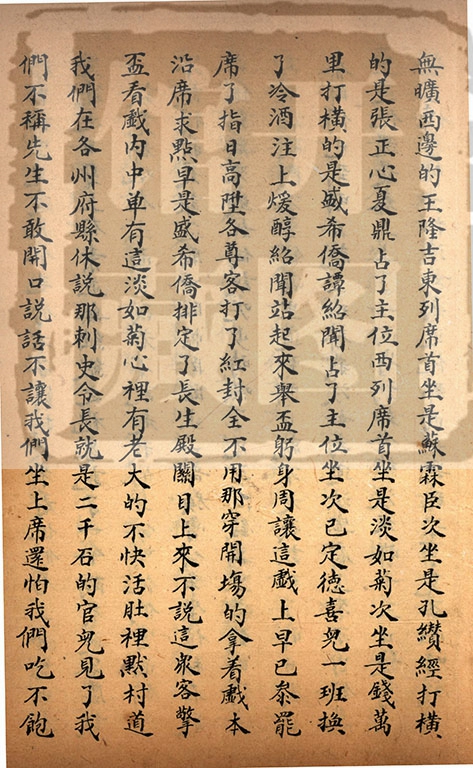 無曠西邊的王隆吉東列席首坐是蘇霖臣次坐是孔纘經打橫
的是張正心夏鼎占了主位西列席首坐是淡如菊次坐是錢萬
里打橫的是盛希僑譚紹聞占了主位坐次已定德喜兒一班換
了冷酒注上煖醇紹聞站起來舉盃躬身周讓這戲上早已叅罷
席了指日高陞各尊客打了紅封全不用那穿開塲的拿着戲本
沿席求點早是盛希僑排定了長生殿關目上來不說這眾客擎
盃看戲內中单有這淡如菊心裡有老大的不快活肚裡黙村道
我們在各州府縣休說那刺史令長就是二千石的官兒見了我
們不稱先生不敢開口說話不讓我們坐上席還怕我們吃不飽